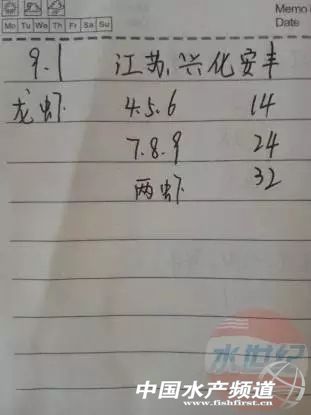 Memo
Mo Tu We Th Fr Sa Su
Date
9.1 江苏、兴化安丰
龙虾 4.5.6 14
7.8.9 24
两虾 32
水世纪
中国水产频道
www.fishfirst.cn